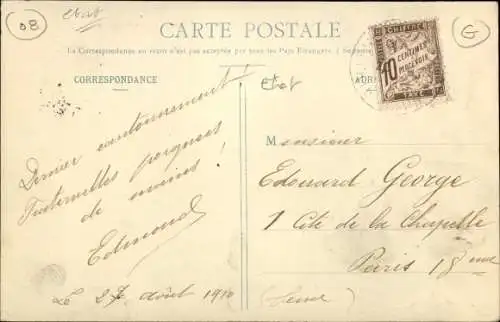 08
état
G
CARTE POSTALE
La Correspondance au recto n'est pas acceptée par tous les Pays Étrangers. (
CORRESPONDANCE
état
ADR
CHIFFRE
10 CENTIMES A PERCEVOIR
TAXE
Dernier cantonnement
Fraternelles
de moins !
Edmond
Le 27 août 1910
Monsieur
Edouard George
1 Cité de la Chapelle
Paris 18eme
(Seine)